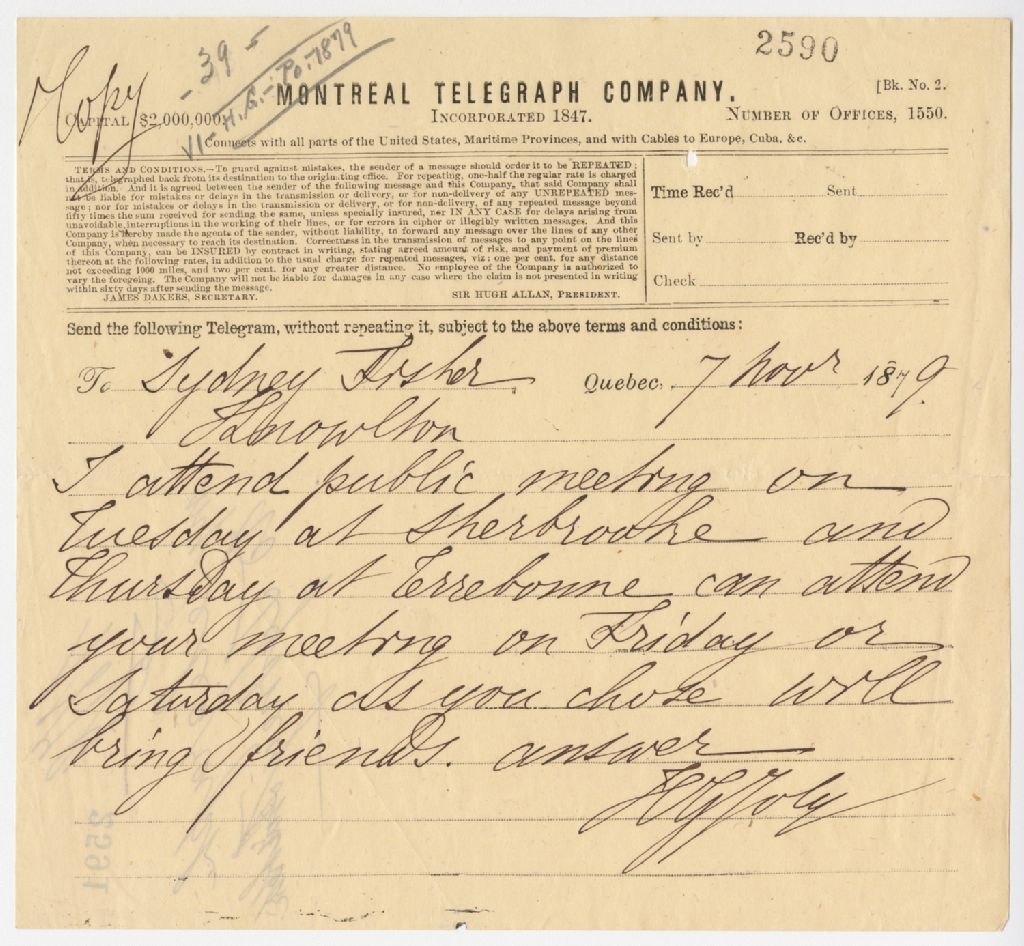 2590
Copy
- 39 -
VI - H. G. - Po. 1879
MONTREAL TELEGRAPH COMPANY.
[Bk. No. 2.
CAPITAL $2,000,000.
INCORPORATED 1847.
NUMBER OF OFFICES, 1550.
Connects with all parts of the United States, Maritime Provinces, and with Cables to Europe, Cuba, &c.
TERMS AND CONDITIONS.—To guard against mistakes, the sender of a message should order it to be REPEATED;
that is, telegraphed back from its destination to the originating office. For repeating, one-half the regular rate is charged
in addition. And it is agreed between the sender of the following message and this Company, that said Company shall
not be liable for mistakes or delays in the transmission or delivery, or for non-delivery of any UNREPEATED mes-
sage; nor for mistakes or delays in the transmission or delivery, or for non-delivery, of any repeated message beyond
fifty times the sum received for sending the same, unless specially insured, nor IN ANY CASE for delays arising from
unavoidable interruptions in the working of their lines, or for errors in cipher or illegibly written messages. And this
Company is hereby made the agents of the sender, without liability, to forward any message over the lines of any other
Company, when necessary to reach its destination. Correctness in the transmission of messages to any point on the lines
of this Company, can be INSURED by contract in writing, stating agreed amount of risk, and payment of premium
thereon at the following rates, in addition to the usual charge for repeated messages, viz: one per cent. for any distance
not exceeding 1000 miles, and two per cent. for any greater distance. No employee of the Company is authorized to
vary the foregoing. The Company will not be liable for damages in any case where the claim is not presented in writing
within sixty days after sending the message.
JAMES DAKERS, SECRETARY.
SIR HUGH ALLAN, PRESIDENT.
Time Rec'd Sent
Sent by Rec'd by
Check
Send the following Telegram, without repeating it, subject to the above terms and conditions:
To Sydney Fisher Quebec, 7 Novr 1879.
Knowlton
I attend public meeting on
Tuesday at Sherbrooke and
Thursday at Terrebonne can attend
your meeting on Friday or
Saturday as you chose will
bring friends. answer
HG Joly
2591